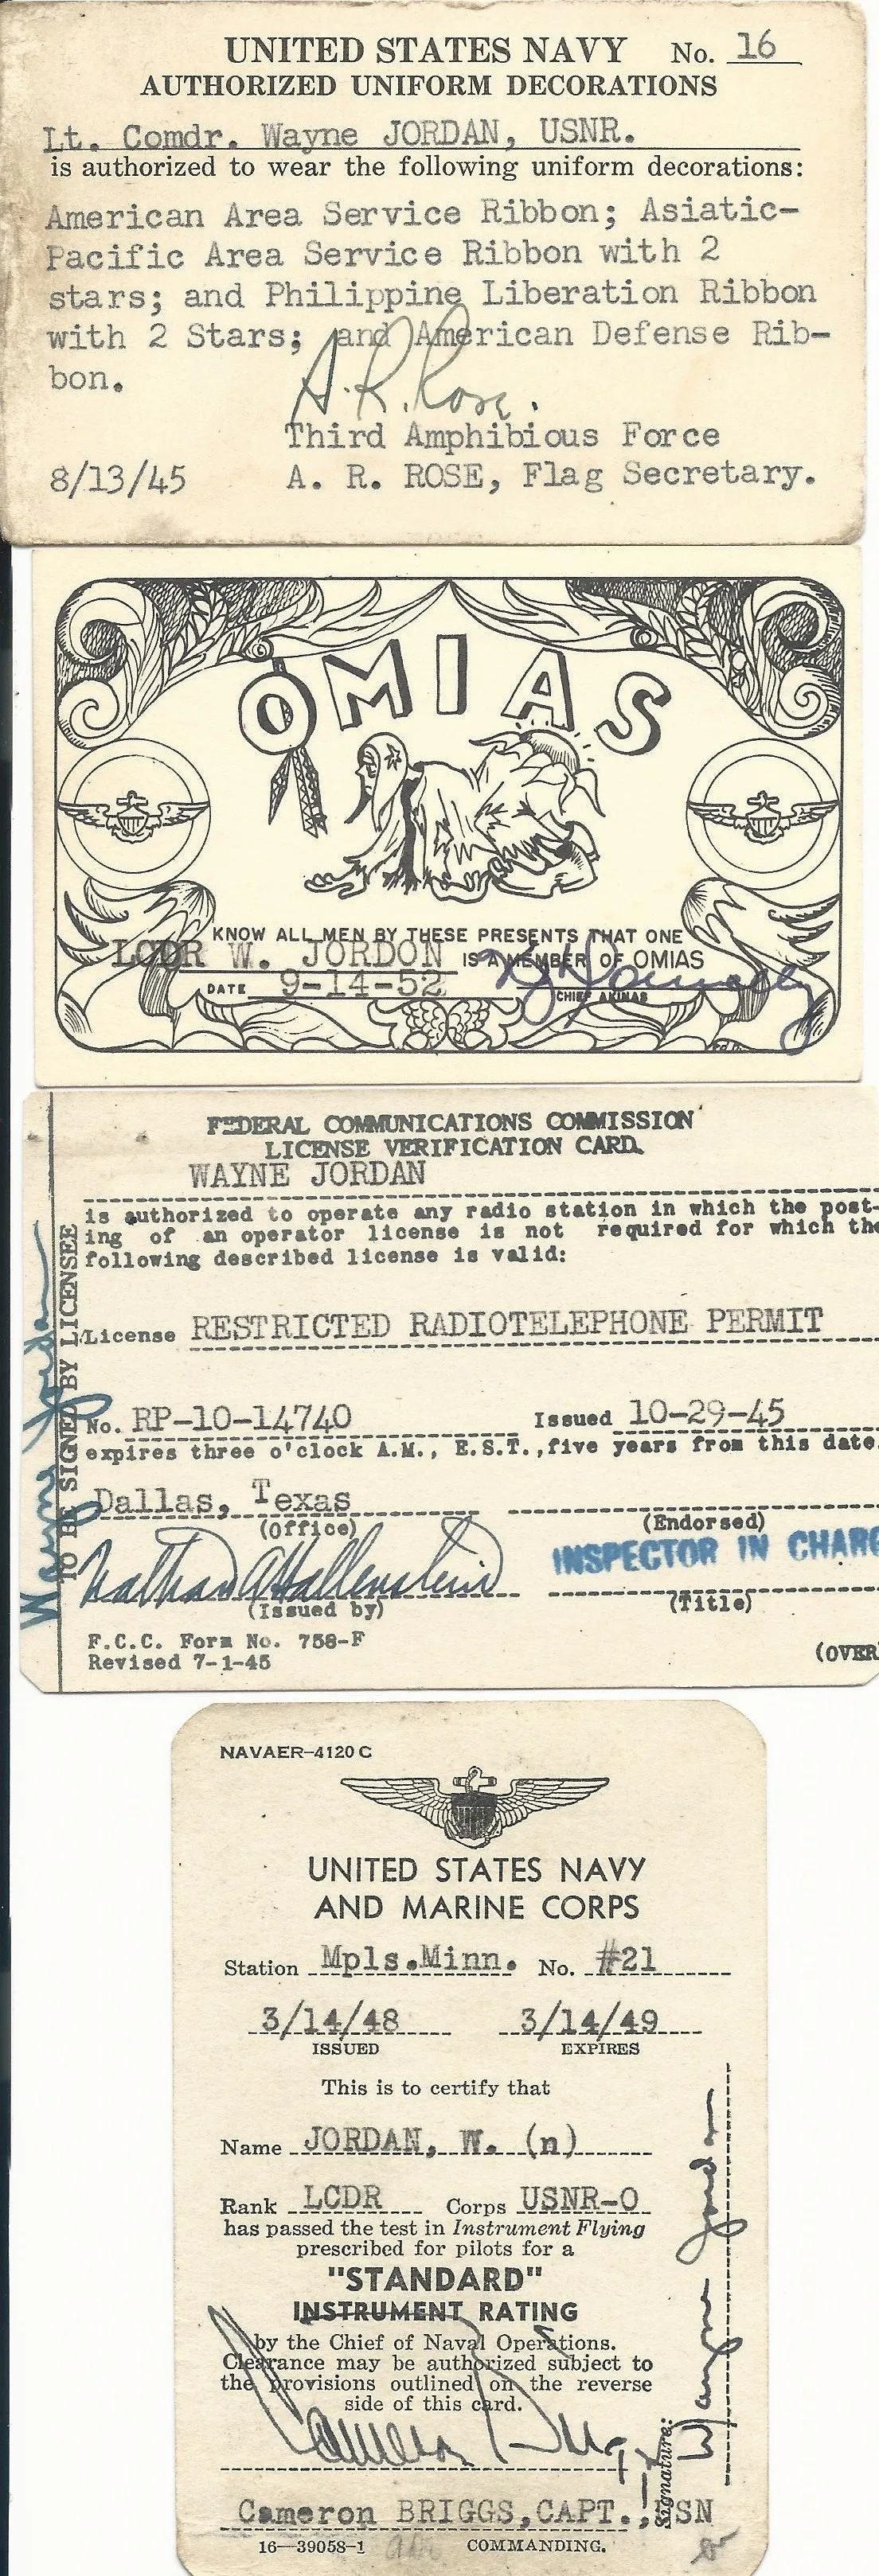 UNITED STATES NAVY No. 16
AUTHORIZED UNIFORM DECORATIONS
Lt. Comdr. Wayne JORDAN, USNR.
is authorized to wear the following uniform decorations:
American Area Service Ribbon; Asiatic-
Pacific Area Service Ribbon with 2
stars; and Philippine Liberation Ribbon
with 2 Stars; and American Defense Rib-
bon.
A.R. Rose.
Third Amphibious Force
8/13/45 A. R. ROSE, Flag Secretary.
OMIAS
KNOW ALL MEN BY THESE PRESENTS THAT ONE
LCDR W. JORDON IS A MEMBER OF OMIAS
DATE 9-14-52
CHIEF AKINAS
FEDERAL COMMUNICATIONS COMMISSION
LICENSE VERIFICATION CARD
WAYNE JORDAN
is authorized to operate any radio station in which the post-
ing of an operator license is not required for which the
following described license is valid:
License RESTRICTED RADIOTELEPHONE PERMIT
No. RP-10-14740 Issued 10-29-45
expires three o'clock A.M., E.S.T., five years from this date.
Dallas, Texas
(Office) (Endorsed)
Nathan A Hallenstein INSPECTOR IN CHARG
(Issued by) (Title)
F.C.C. Form No. 758-F
Revised 7-1-45 (OVER
TO BE SIGNED BY LICENSEE
Wayne Jordan
NAVAER-4120 C
UNITED STATES NAVY
AND MARINE CORPS
Station Mpls.Minn. No. #21
3/14/48 3/14/49
ISSUED EXPIRES
This is to certify that
Name JORDAN, W. (n)
Rank LCDR Corps USNR-O
has passed the test in Instrument Flying
prescribed for pilots for a
"STANDARD"
INSTRUMENT RATING
by the Chief of Naval Operations.
Clearance may be authorized subject to
the provisions outlined on the reverse
side of this card.
Cameron Briggs
Cameron BRIGGS, CAPT., USN
16—39058-1 COMMANDING.
Signature: Wayne Jordan